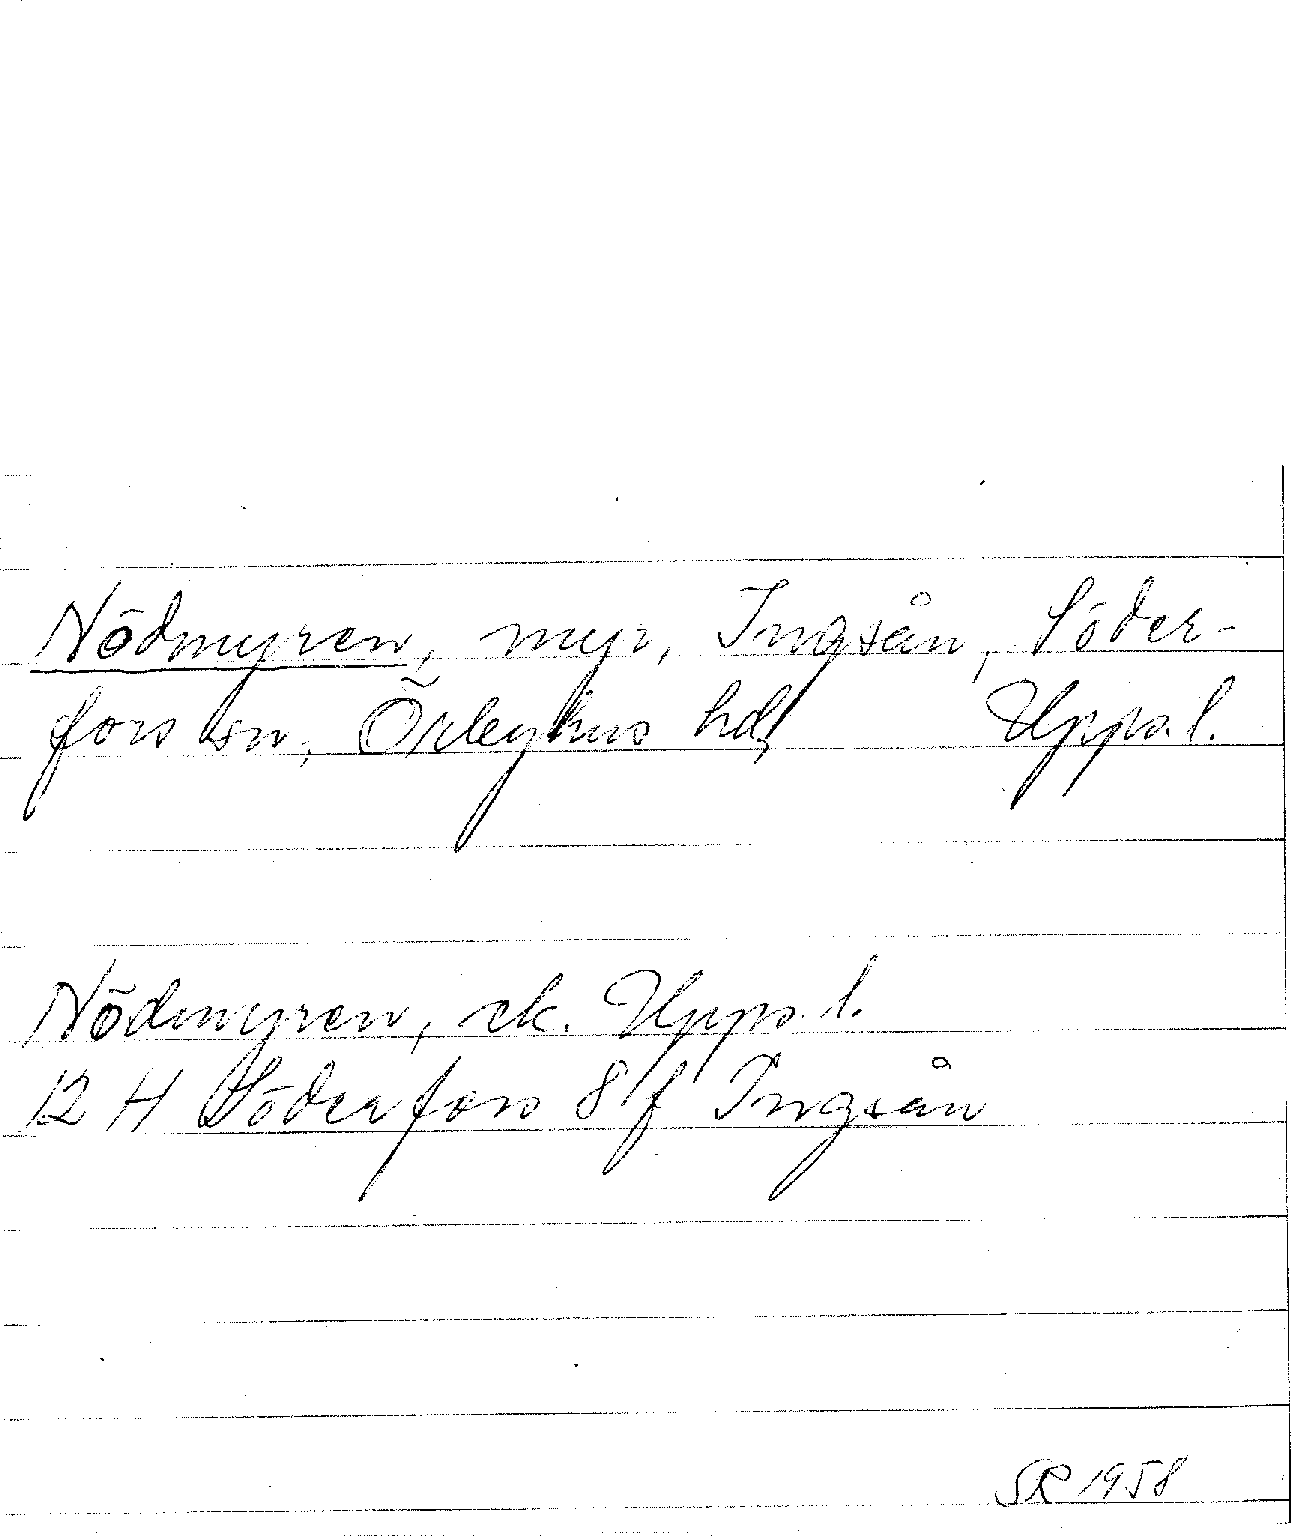 Nödmyren, myr, Ingsån, Söder-
fors sn, Örbyhus hd, Upps. l.
Nödmyren, ek. Upps. l.
12 H Söderfors 8 f Ingsån
SR 1958